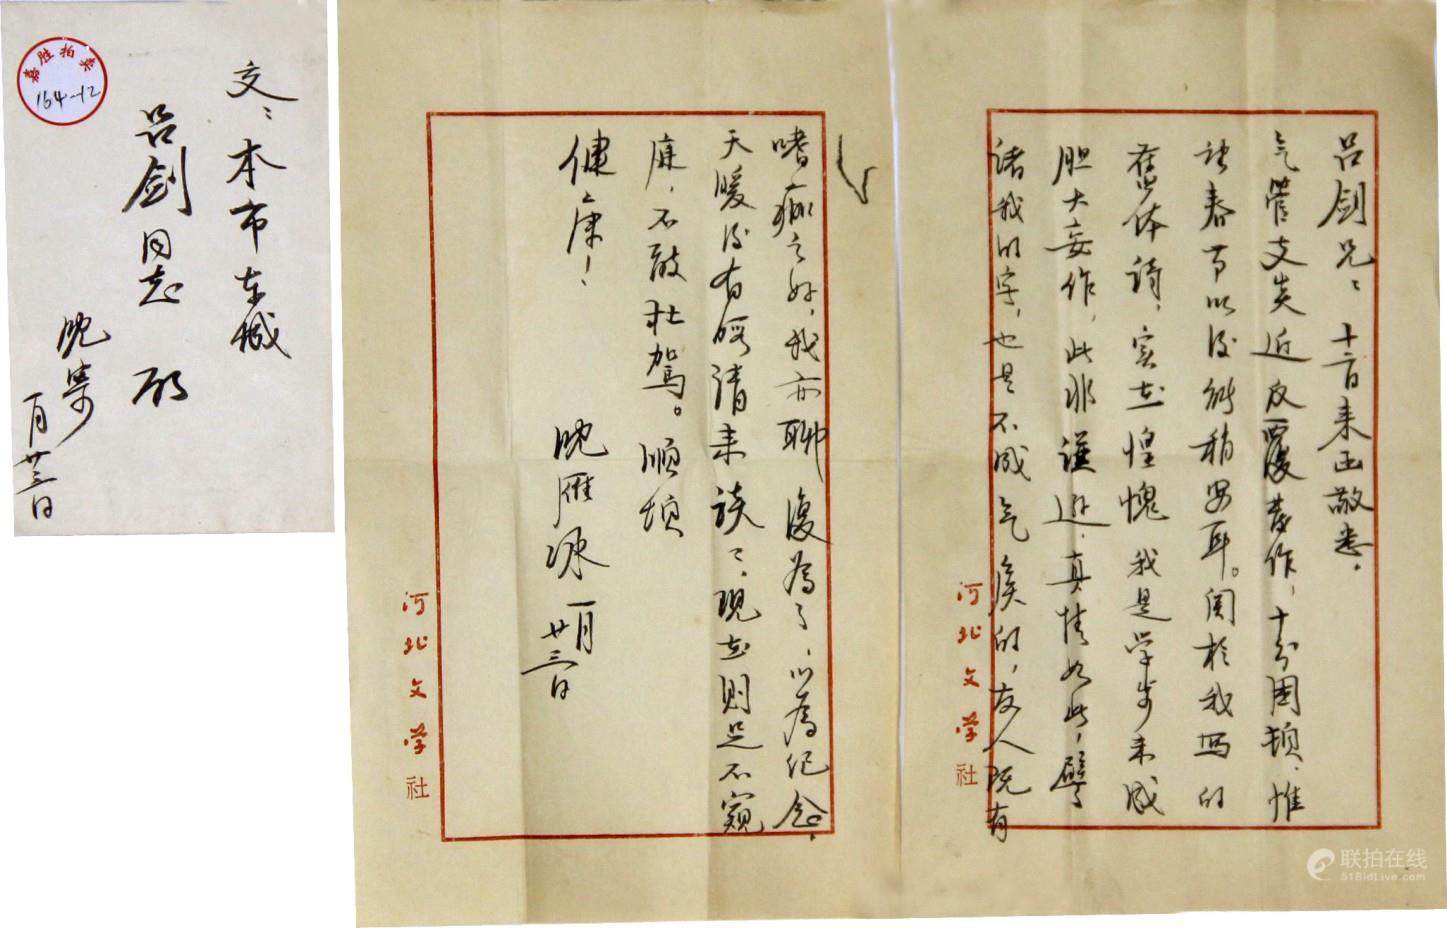 嘉胜拍卖
164-12
交：本市东城
吕剑同志 启
沈寄
一月廿三日
吕剑兄：十二日来函敬悉。
气管支炎近反覆发作，十分困顿，惟
春节以后能稍安耳。关于我写的
旧体诗，实在惶愧，我是学步未成
胆大妄作，此非谦逊，真情如此，譬
诸我的字，也是不成气候的，友人既有
嗜痂之好，我亦聊复为之，以为纪念。
天暖后有暇请来谈谈，现在则足不窥
庭，不敢枉驾。顺颂
健康！
沈雁冰 一月廿三日
河北文学社
河北文学社
联拍在线
51BidLive.com